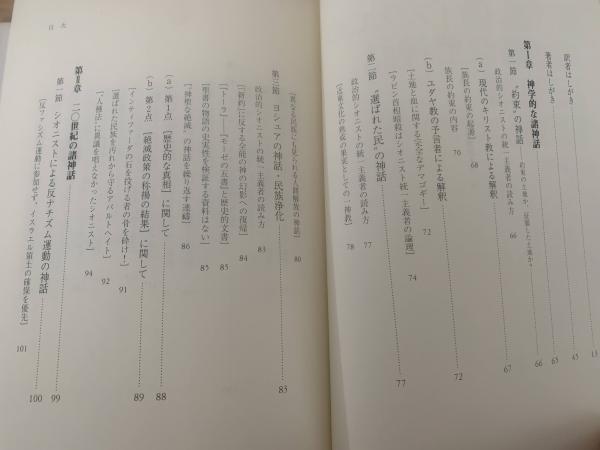 訳者はしがき 13
著者はしがき 45
第Ⅰ章 神学的な諸神話 63
第一節 “約束”の神話——約束の土地か、征服した土地か? 66
政治的シオニストの統一主義者の読み方 66
(a) 現代のキリスト教による解釈 67
[族長の約束の起源] 68
族長の約束の内容 70
(b) ユダヤ教の予言者による解釈 72
[土地と血に関する完全なデマゴギー] 72
[ラビン首相暗殺はシオニスト統一主義者の論理] 74
第二節 “選ばれた民”の神話 77
政治的シオニストの統一主義者の読み方 77
[古東文化の熟成の果実としての一神教] 78
目次
[異なる民族にも見られる人間解放の神話] 80
第三節 ヨシュアの神話・民族浄化 83
政治的シオニストの統一主義者の読み方 83
[『新約』に反する全能の神の幻影への復帰] 84
[『トーラ』=『モーゼの五書』と歴史的文書] 85
[聖書の物語の史実性を検証する資料はない] 85
[「神聖な絶滅」の神話を繰り返す連禱] 86
(a) 第1点[歴史的な真相]に関して 88
(b) 第2点[絶滅政策の称揚の結果]に関して 89
[インティファーダの石を投げる者の骨を砕け!] 91
[選ばれた民族を汚れから守るアパルトヘイト] 92
[「人種法」に異議を唱えなかったシオニスト] 94
第Ⅱ章 二〇世紀の諸神話 99
第一節 シオニストによる反ナチズム運動の神話 100
[反ファシズム運動に参加せず、イスラエル領土の確保を優先] 101